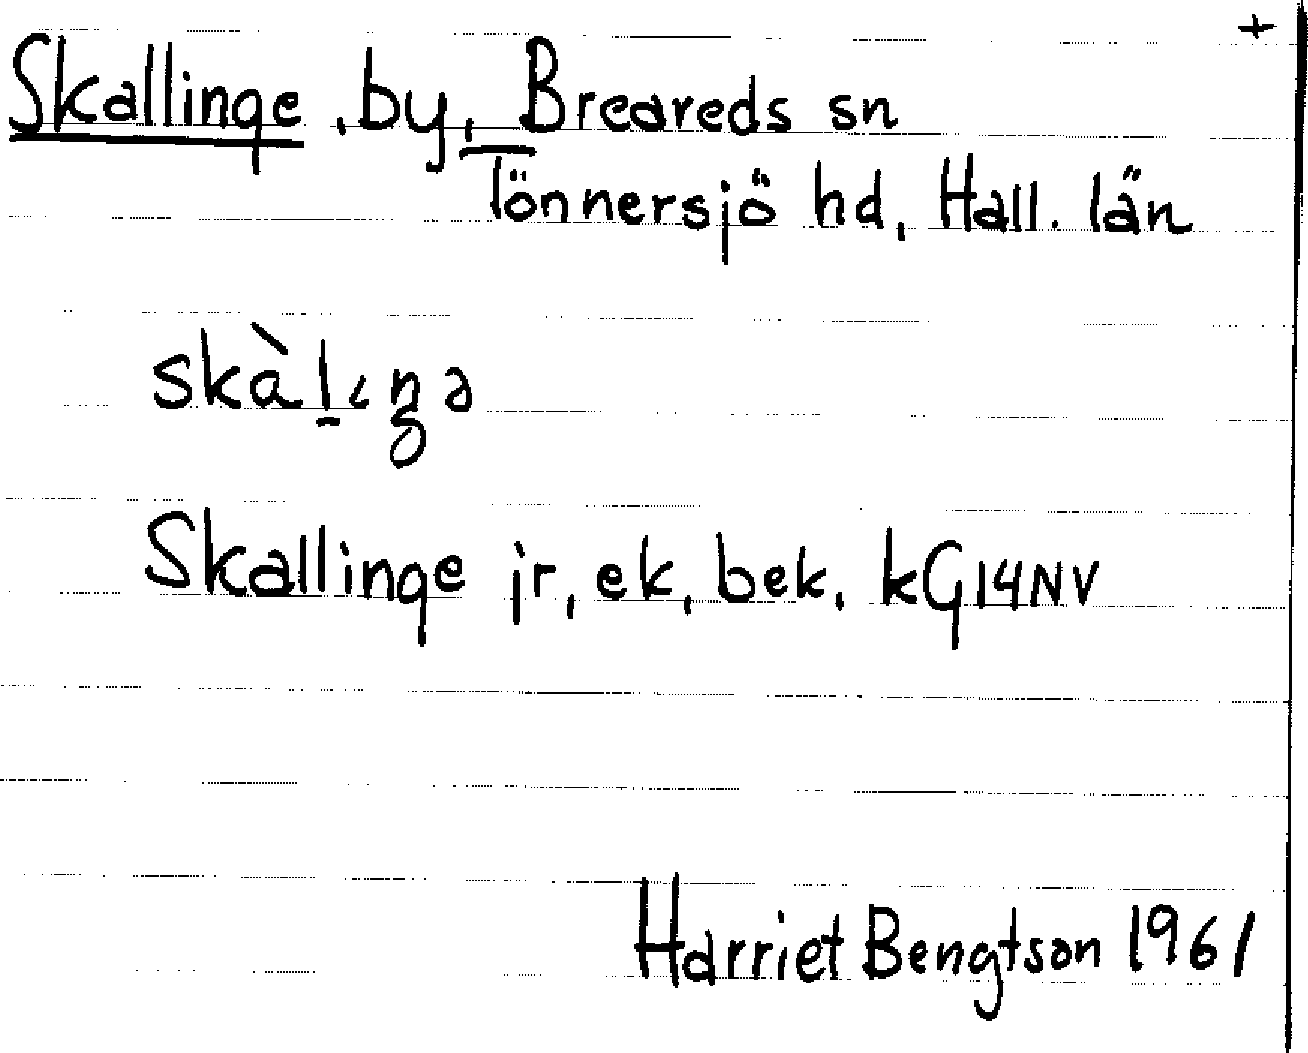 +
Skallinge, by, Breareds sn
Tönnersjö hd, Hall. län
skàlıŋə
Skallinge jr, ek, bek. kG14NV
Harriet Bengtson 1961